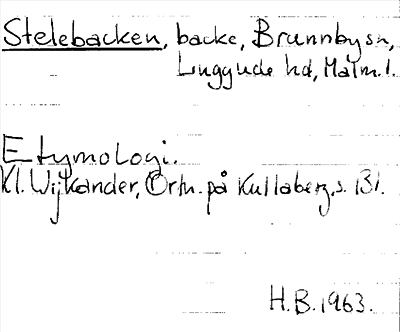 Stelebacken, backe, Brunnby sn,
Luggude hd, Malm.l.
Etymologi.
Kl. Wijkander, Ortn. på Kullaberg, s. 131.
H.B. 1963.